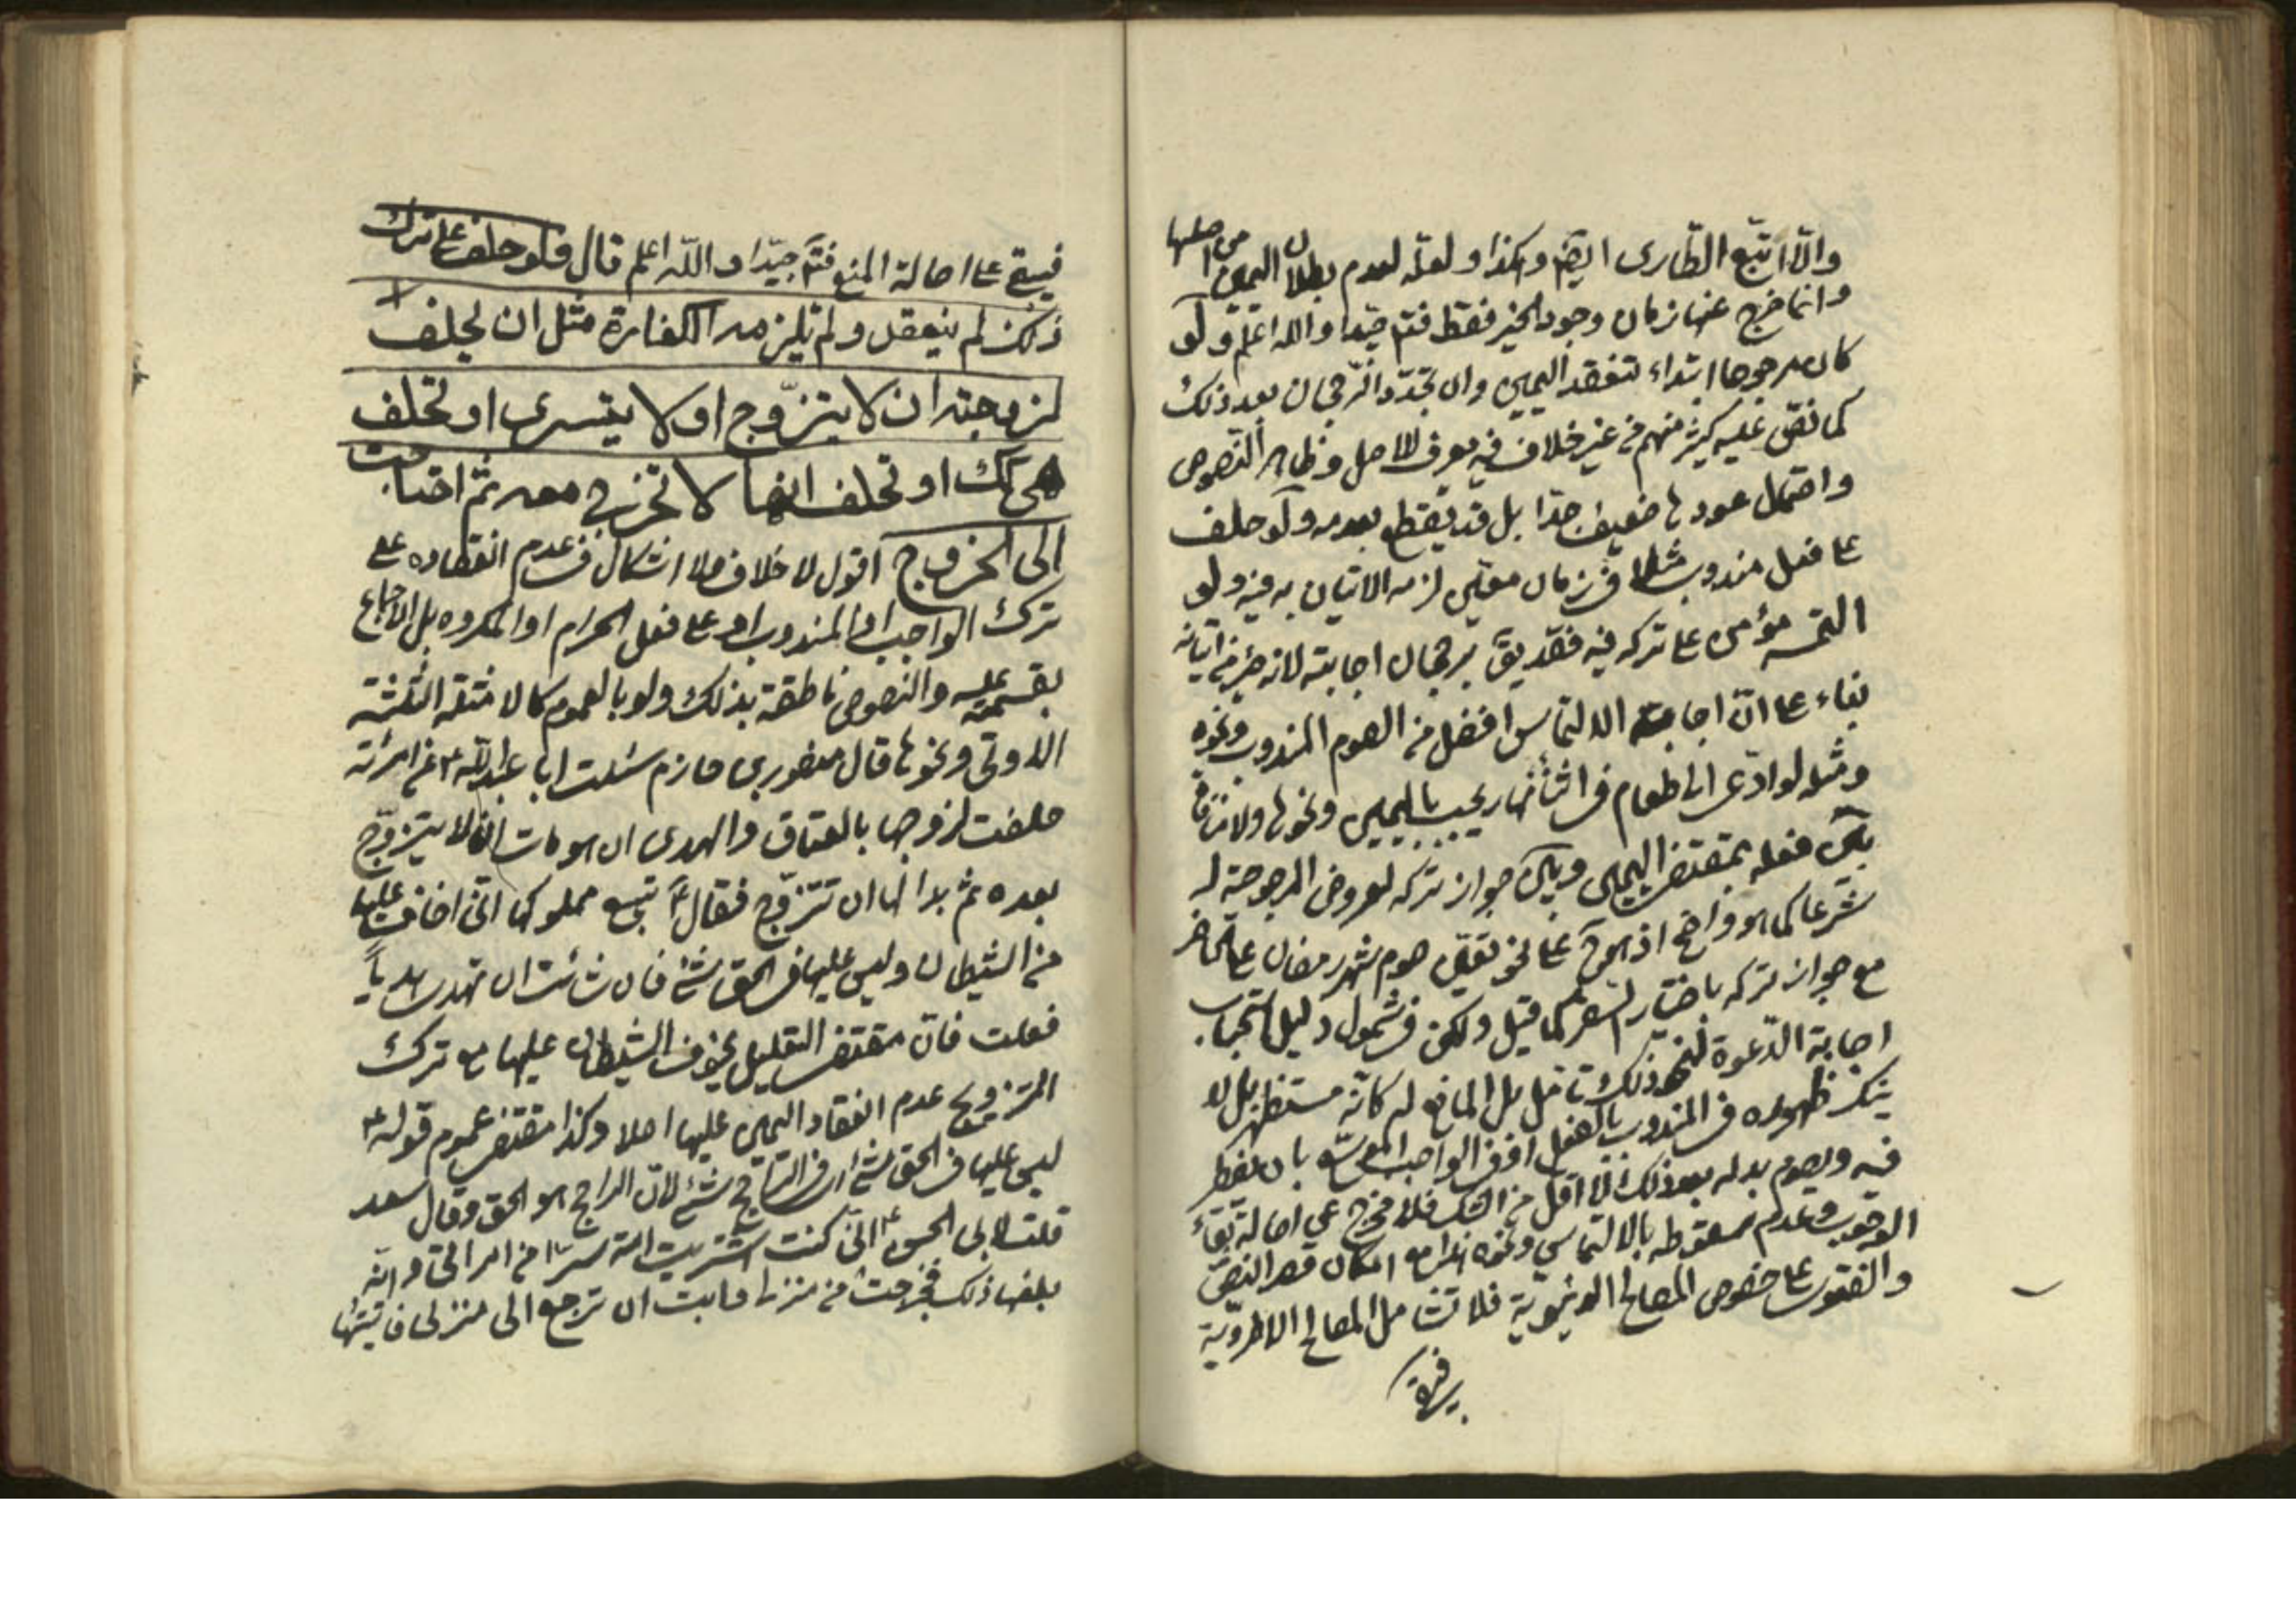 والّا اتبع الطّارى ايضم وهكذا ولعلّه لعدم بطلان اليمين من اصلها
وانما خرج عنها زمان وجود الخير فقط فتم جيّدا والله اعلم ولو
كان مرجوحا ابتداء لم تنعقد اليمين وان تجدّد الرّجحان بعد ذلك
كما نصّ عليه كثير منهم من غير خلاف فيه يعرف للاصل وظاهر النّصوص
واحتمال عودها ضعيف جدّا بل قد يقطع بعدمه ولو حلف
على فعل مندوب مثلا فى زمان معيّن لزمه الاتيان به فيه ولو
التمسه مؤمن على تركه فيه فقد يق برجحان اجابته لانه خير من اتيانه
بناء على انّ اجابة الالتماس افضل من الصوم المندوب ونحوه
ومثله لو ادّعى الى طعام فى اثناء نهار يجب باليمين ونحوها ولا منافاة
بين فعله بمقتضى اليمين وبين جواز تركه لعروض المرجوحيّة له
شرعا كما هو واضح اذ هو ح على نحو تعيّن صوم شهر رمضان على الحاضر
مع جواز تركه باختيار السفر كما قيل ولكن فى شمول دليل استحباب
اجابة الدّعوة لنحو ذلك تامّل بل المانع له كانّه مستظهر بل لا
ينكر ظهوره فى المندوب بالفعل او فى الواجب الموسّع بان يفطر
فيه ويصوم بدله بعد ذلك لا اقل من الشك فلا مخرج عن اصالة بقاء
الوجوب وعدم سقوطه بالالتماس ونحوه هذا مع امكان قصر النصّ
والفتوى على خصوص المصالح الدنيويّة فلا تشامل المصالح الاخرويّة
فيبقى على اصالة المنع فتم جيّدا والله اعلم قال فلو حلف على ترك
ذلك لم ينعقد ولم تلزمه الكفارة مثل ان يحلف
لزوجته ان لا يتزوّج او لا يتسرى او تحلف
هى كك او تحلف انها لا تخرج معه ثم احتاجت
الى الخروج اقول لا خلاف ولا اشكال فى عدم انعقاده على
ترك الواجب او المندوب او على فعل الحرام او المكروه بل الاجماع
بقسميه عليه والنصوص ناطقة بذلك ولو بالعموم كالامثلة الثلثة
الاولى ونحوها قال منصور بن حازم سئلت ابا عبدالله ع عن امرئة
حلفت لزوجها بالعتاق والهدى ان هو مات ان لا يتزوّج
بعده ثم بدا لها ان تتزوّج فقال ع تبيع مملوكها انّى اخاف عليها
من الشيطان وليس عليها فى الحق شئ فان شائت ان تهدى هديا
فعلت فانّ مقتضى التعليل بخوف الشيطان عليها مع ترك
التزويج عدم انعقاد اليمين عليها اصلا وكذا مقتضى عموم قوله ع
ليس عليها فى الحق شئ اى فى الراجح شئ لانّ الراجح هو الحق وقال سعد
قلت لابى الحسن ع انّى كنت اشتريت امة سرّا من امراتى وانّه
بلغها ذلك فخرجت من منزلى وابت ان ترجع الى منزلى فاتيتها